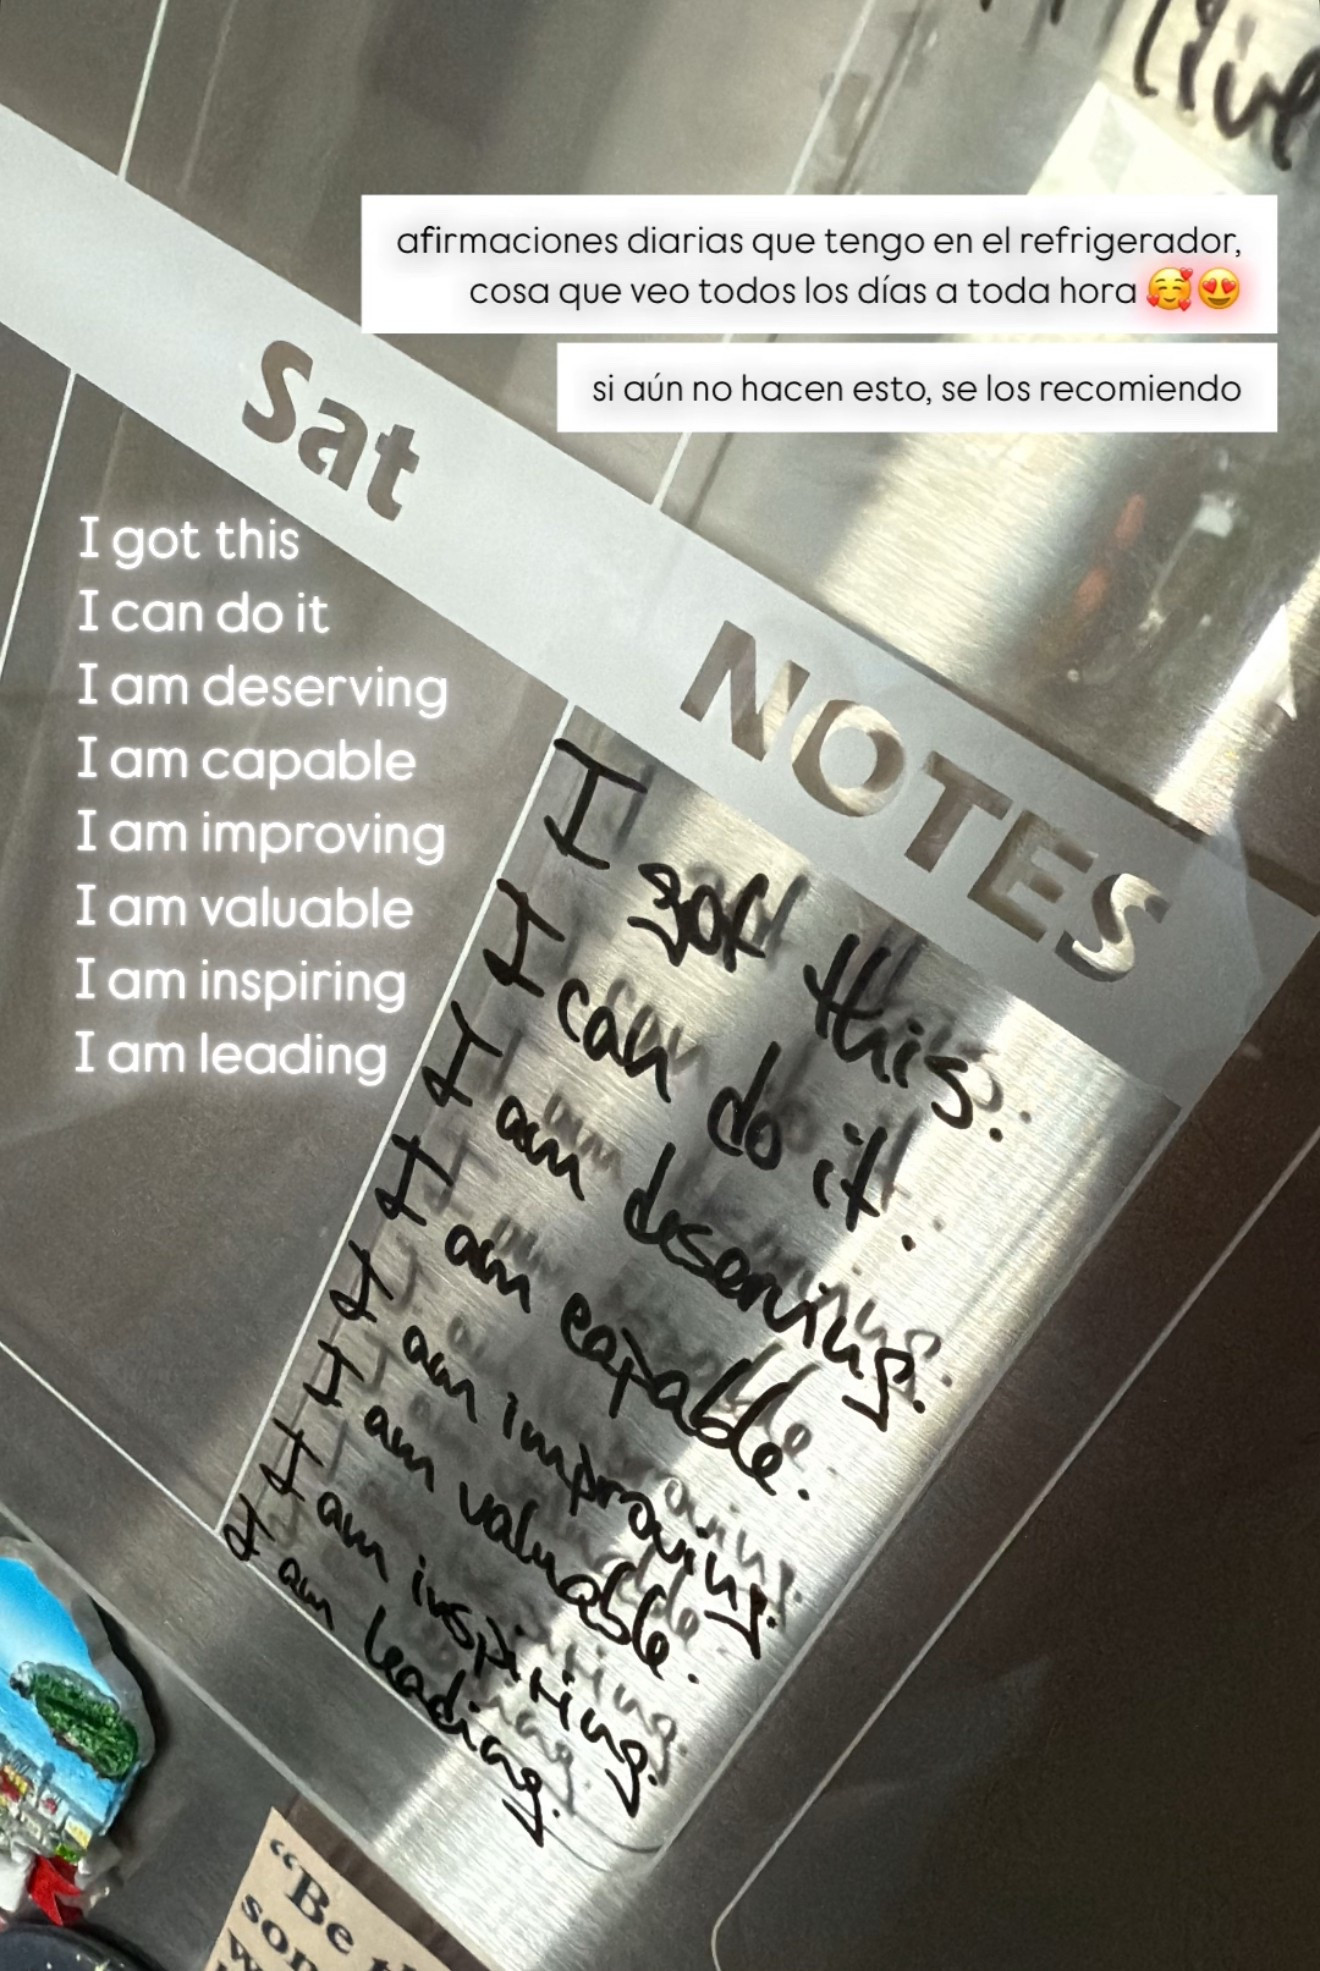 live
afirmaciones diarias que tengo en el refrigerador,
cosa que veo todos los días a toda hora 🥰😍
si aún no hacen esto, se los recomiendo
Sat
NOTES
I got this
I can do it
I am deserving
I am capable
I am improving
I am valuable
I am inspiring
I am leading
I got this.
I can do it.
I am deserving.
I am capable.
I am improving.
I am valuable.
I am inspiring.
I am leading.
"Be